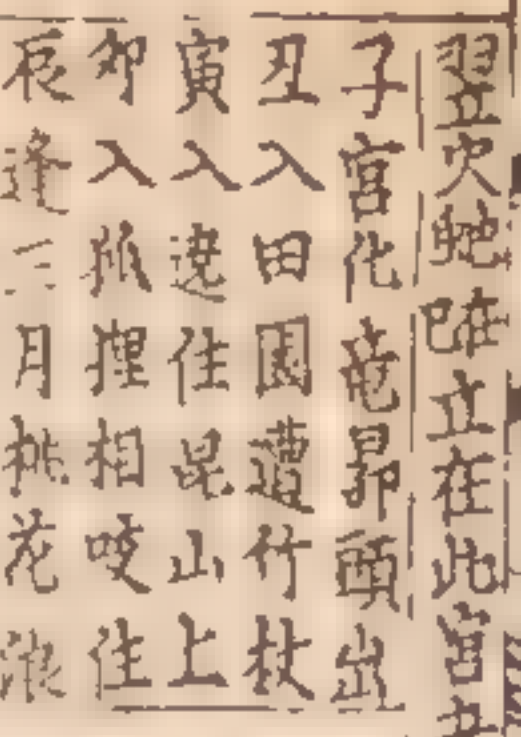 翌火虵 立在此宮
子宮化竜昴頭出
丑入田園遭竹杖
寅入遶住昆山上
卯入狐狸相咬住
辰逢三月桃花浪